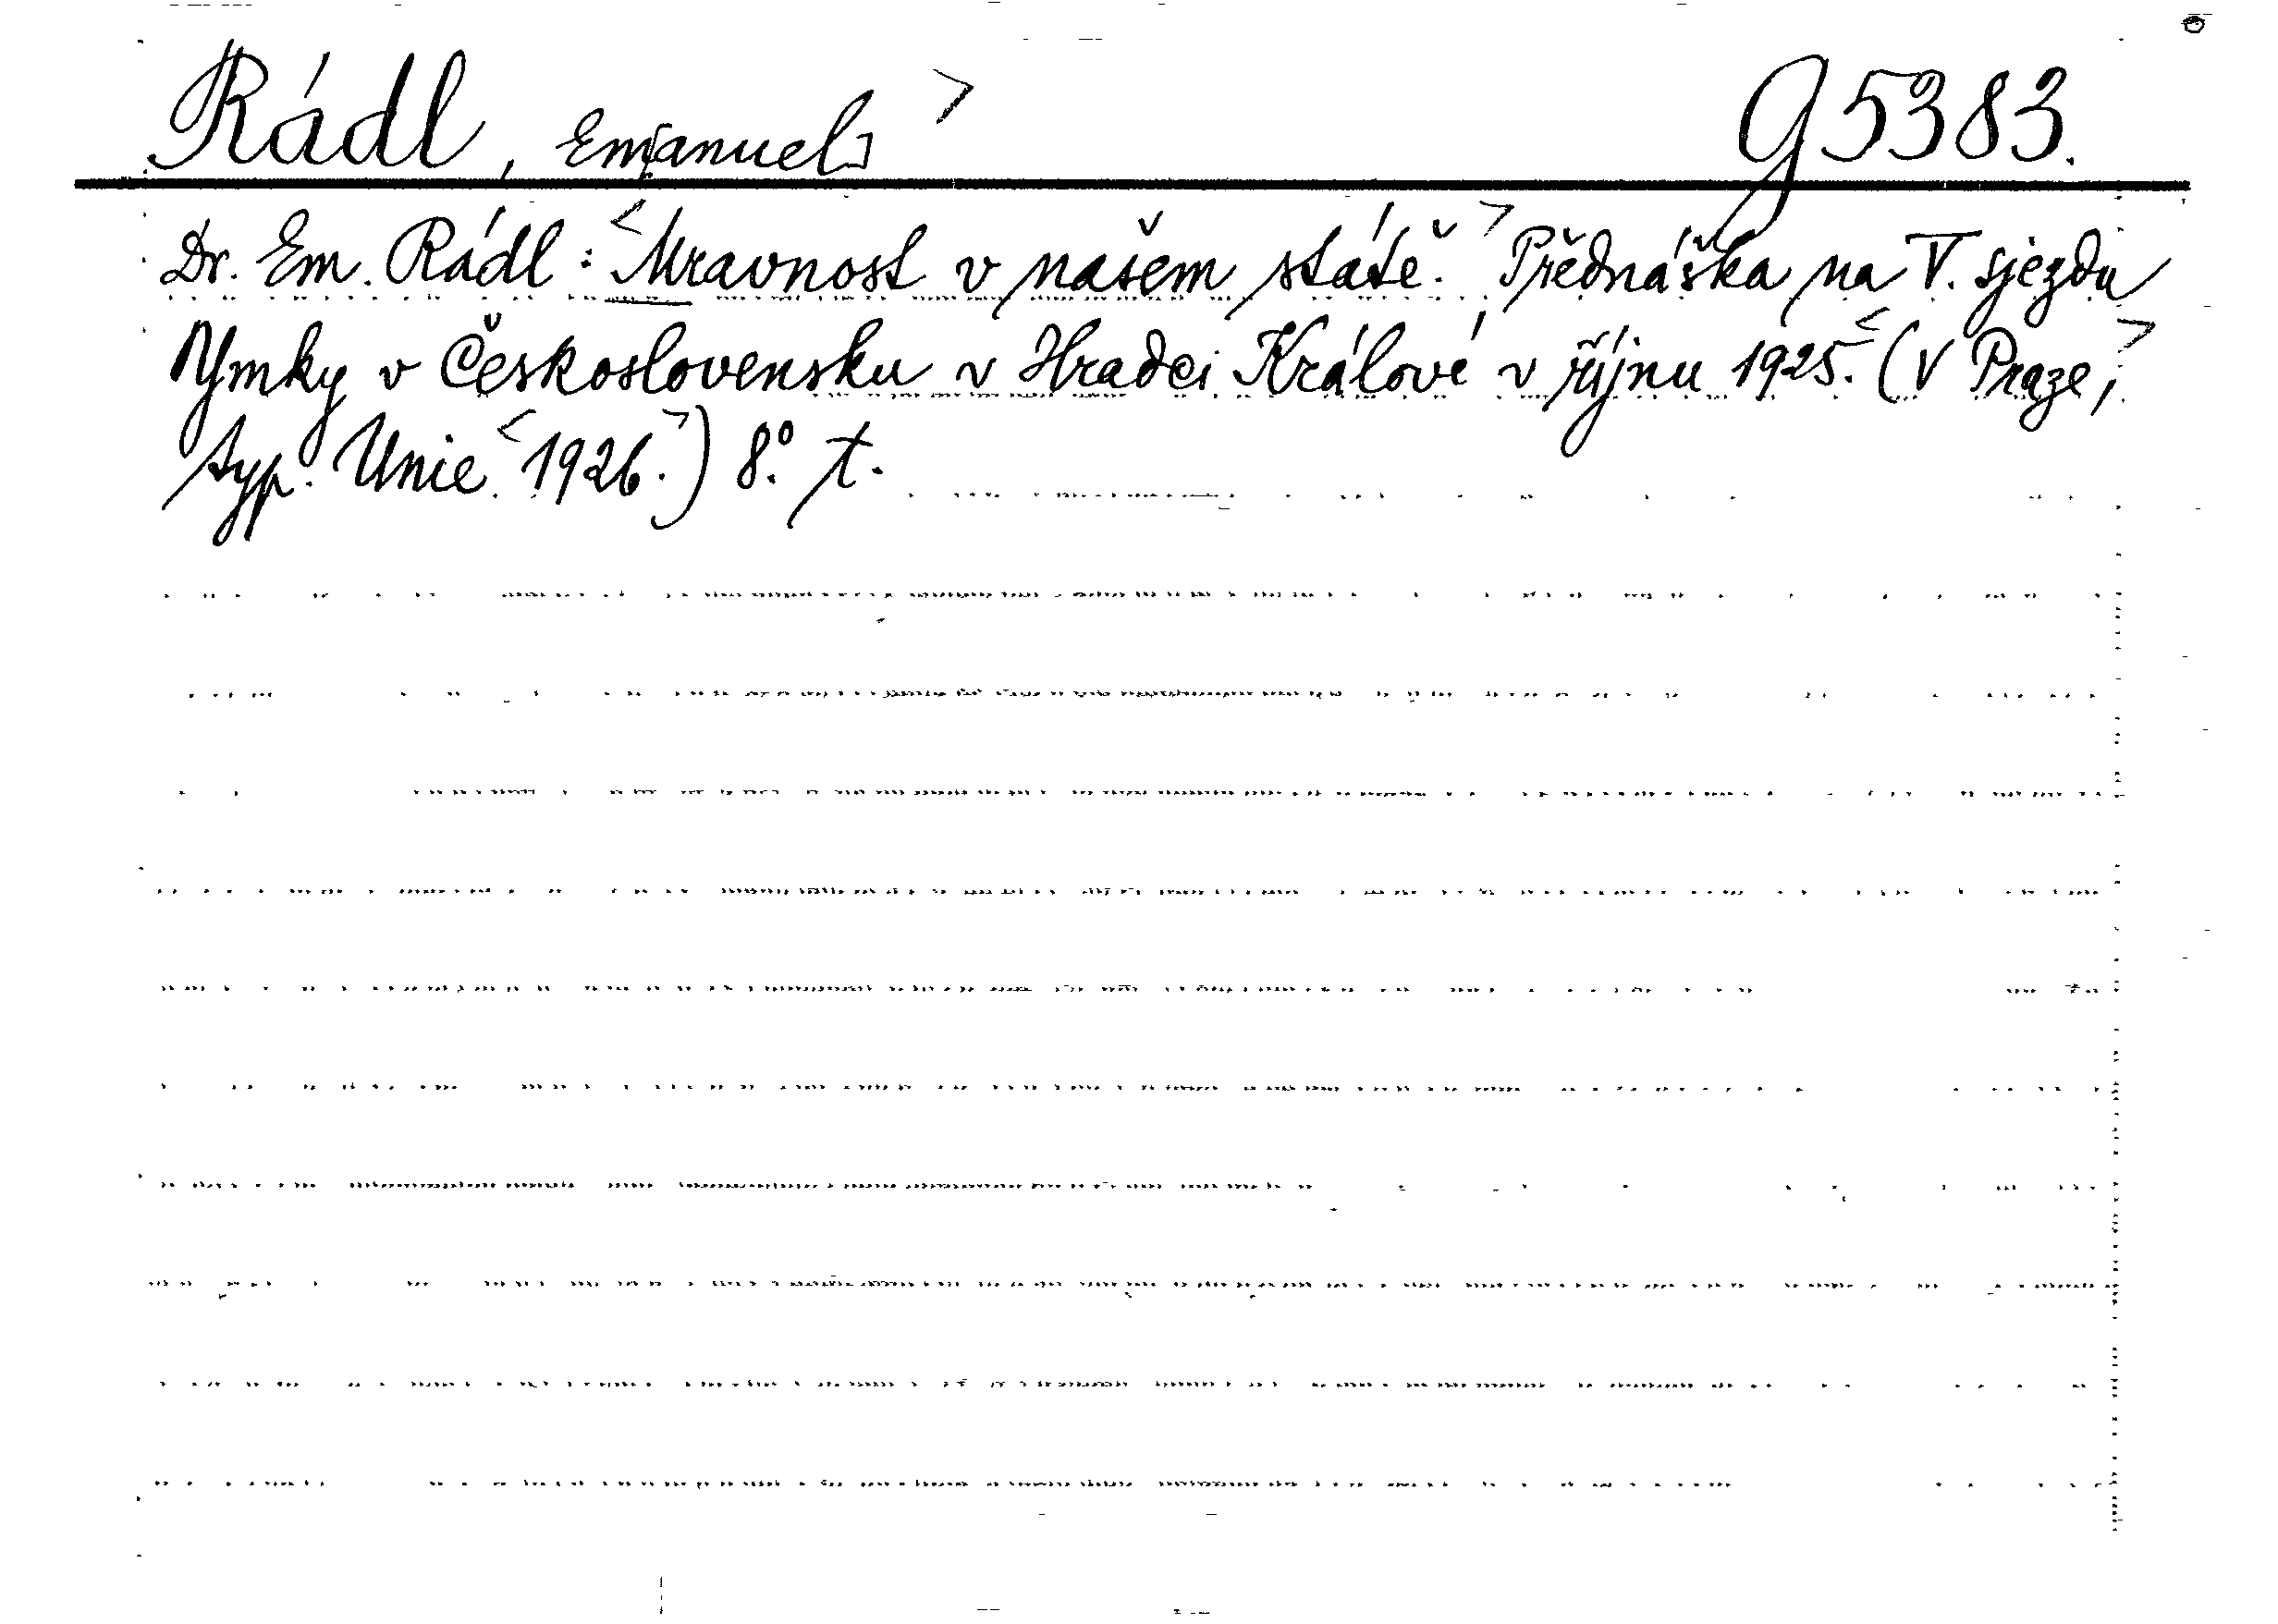 Rádl, Em[anuel] > G 5383.
Dr. Em. Rádl: <Mravnost v našem státě.> Přednáška na V. sjezdu
Ymky v Československu v Hradci Králové v říjnu 1925.< (V Praze,>
typ. Unie <1926.>) 8°. t.